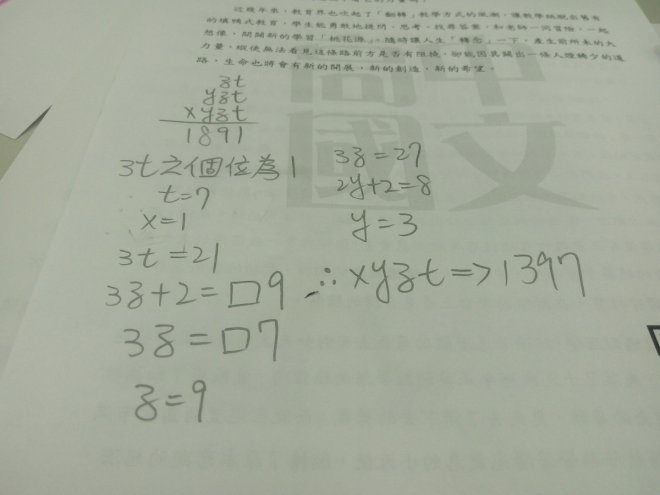 近幾年來，教育界也吹起了「翻轉」教學方式的風潮，讓教學跳脫出舊有
的填鴨式教育，學生能勇敢地提問、思考、找尋答案，和老師一同冒險，一起
想像，開闢新的學習「桃花源」。隨時讓人生「轉念」一下，產生前所未的大
力量，縱使無法看見這條路前方是否有阻撓，卻能因其闢出一條人煙稀少的道
路，生命也將會有新的開展，新的創造，新的希望。
中尚
文國
zt
yzt
xyzt
1891
3t之個位為1
t=7
x=1
3t=21
3z+2=□9
3z=□7
z=9
3z=27
2y+2=8
y=3
∴xyzt=>1397